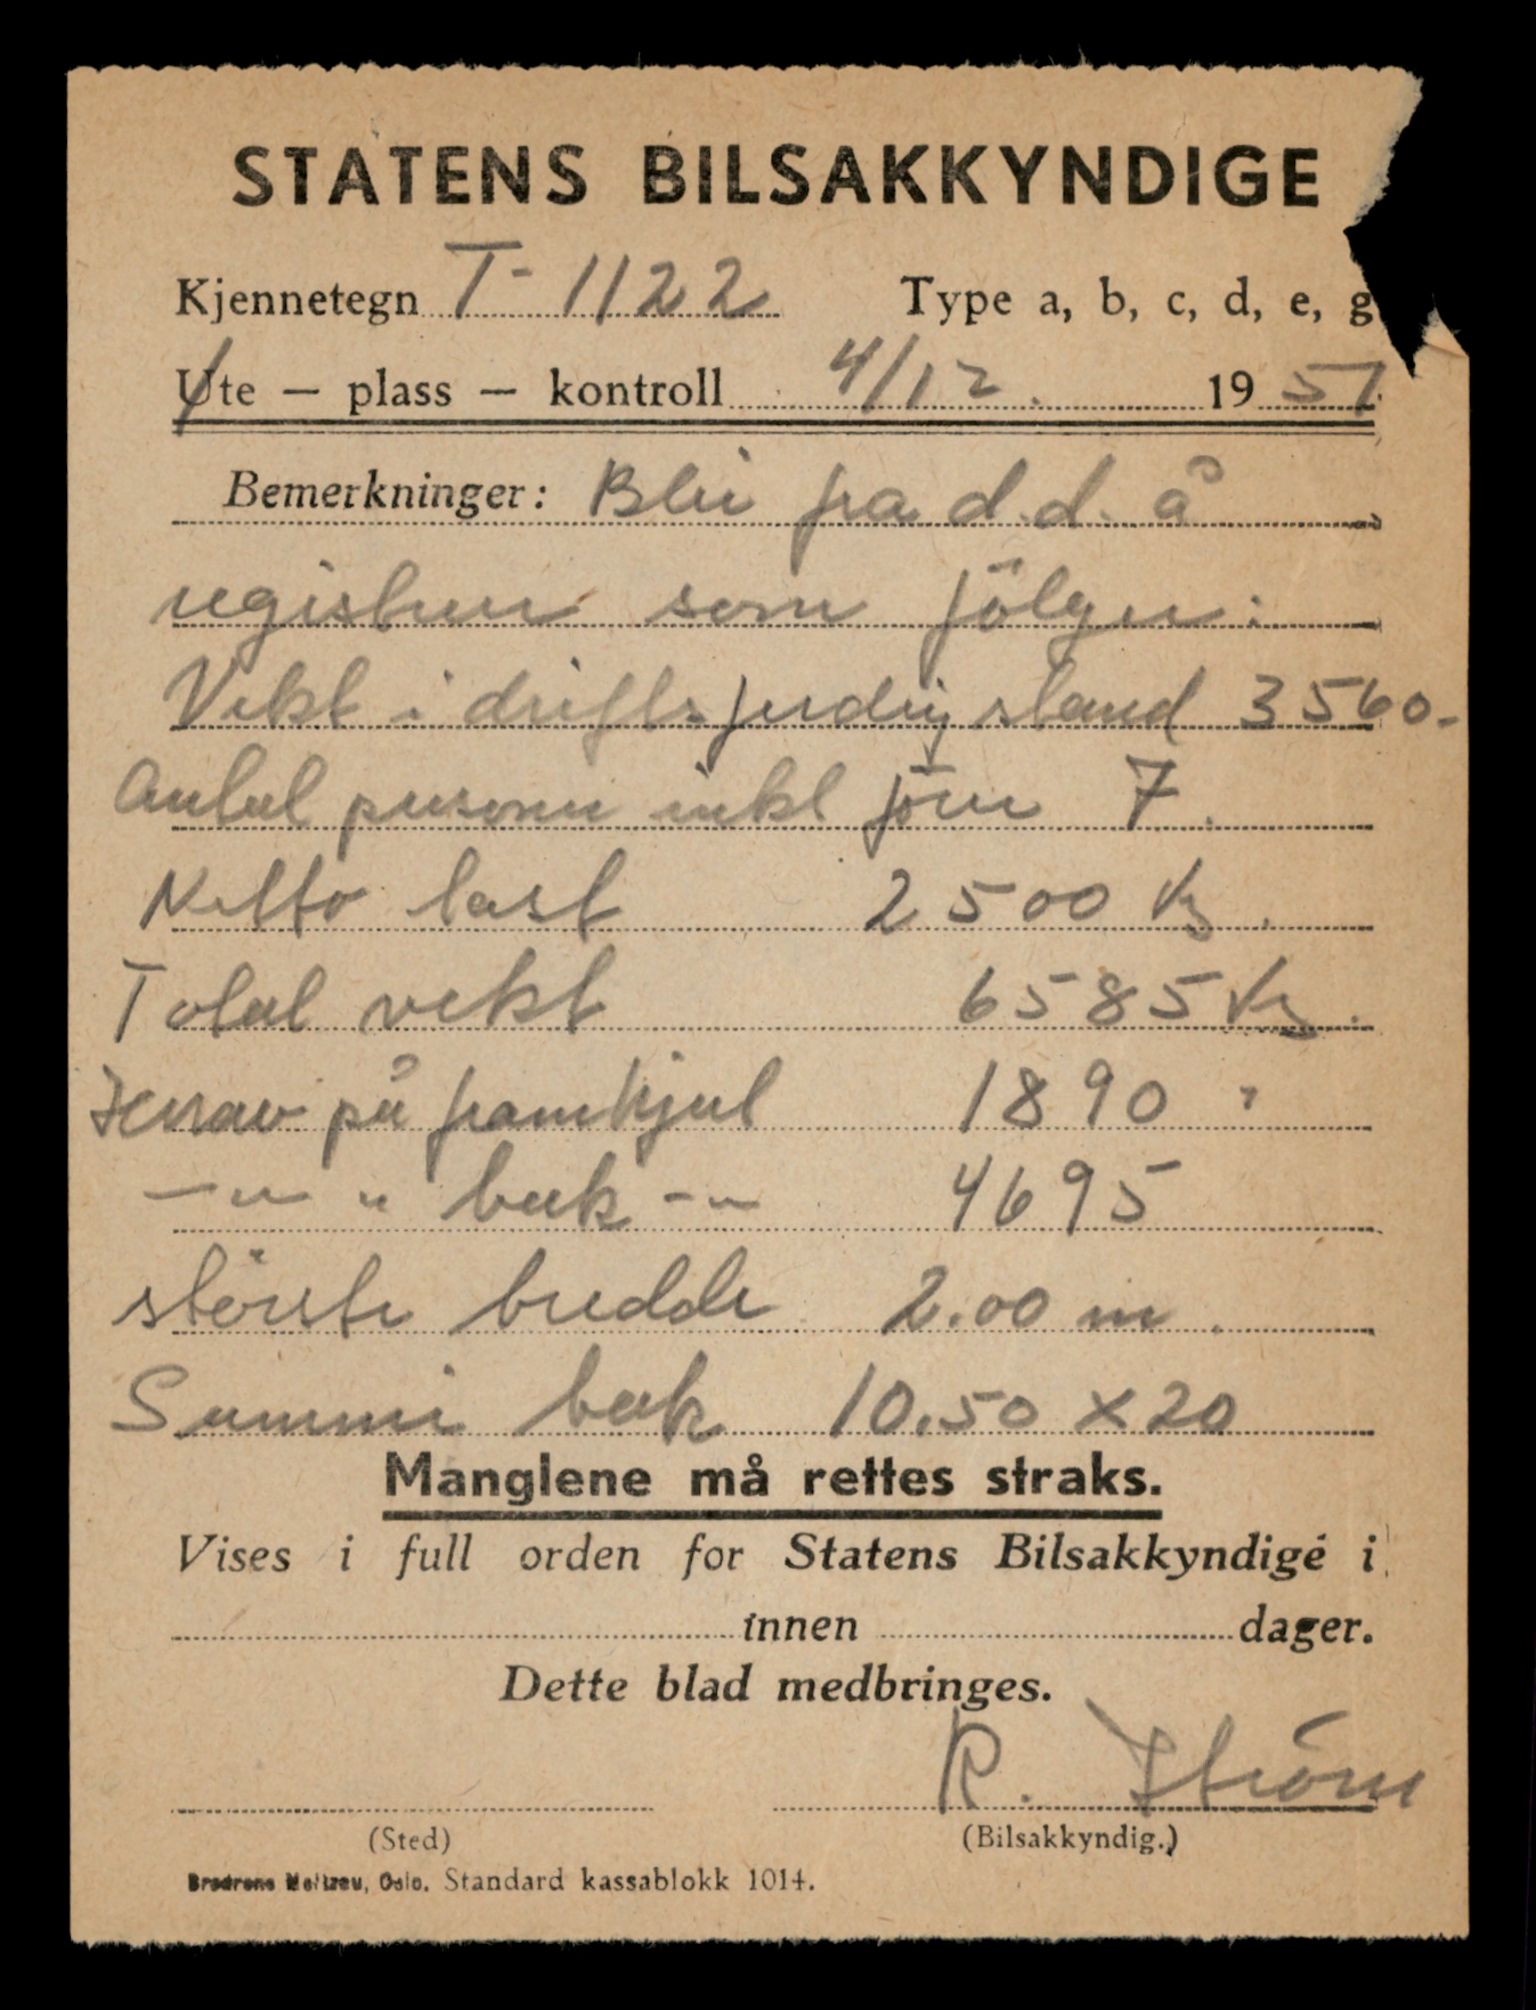 STATENS BILSAKKYNDIGE
Kjennetegn T-1122 Type a, b, c, d, e, g
Ute — plass — kontroll 4/12. 1951
Bemerkninger: Blir fra d.d. å
registrere som følger:
Vekt i driftsferdig stand 3560.-
Antal personer inkl føer 7.
Netto last 2500 kg.
Total vekt 6585 kg.
Herav på framhjul 1890 "
—"— " bak -"-  4695
største bredde 2.00 m.
Gummi bak 10.50 x 20
Manglene må rettes straks.
Vises i full orden for Statens Bilsakkyndige i
innen dager.
Dette blad medbringes.
R. Strøm
(Sted) (Bilsakkyndig.)
Oslo. Standard kassablokk 1014.